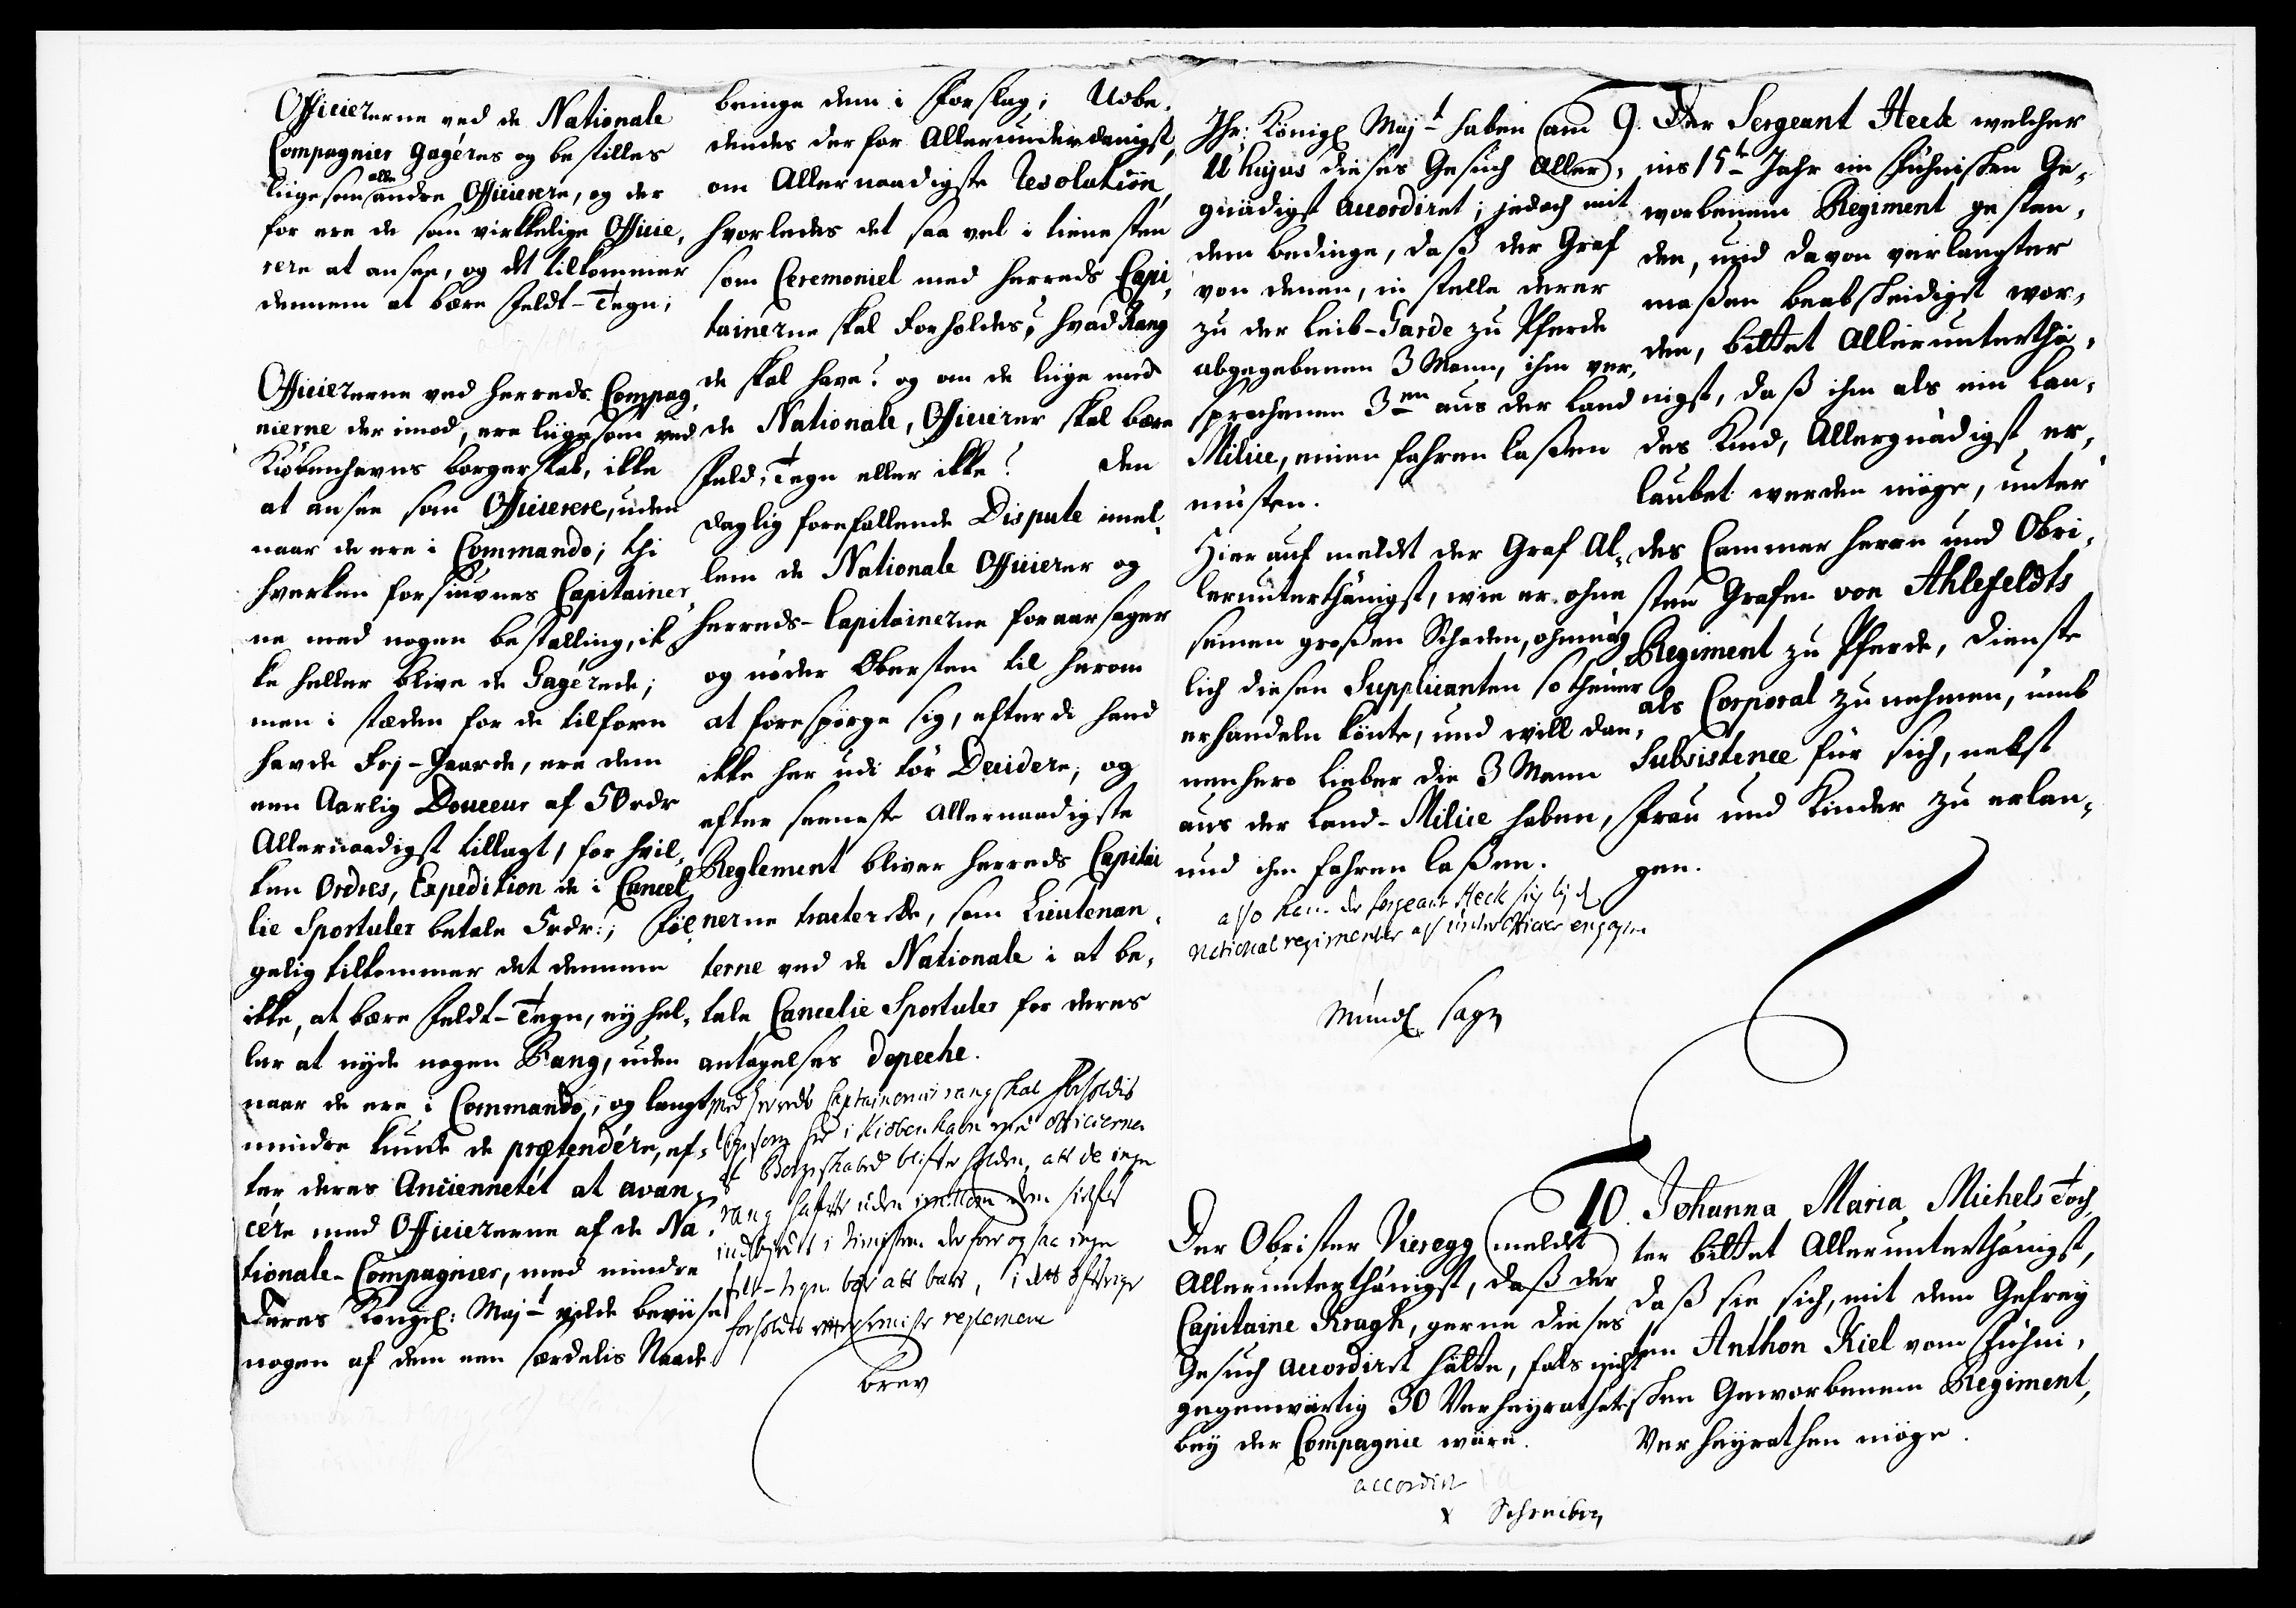 Officiererne ved de Nationale
Compagnier gagéres og bestilles
liigesom alle andre Officierere, og der
for ere de som virkkelige Officie,
rere at ansee, og det tilkommer
dennem at bære Feldt-Tegn;
Officiererne ved Herreds Compag,
nierne der imod, ere liigesom ved
Kiøbenhavns borgerskab, ikke
at ansee som Officierere, uden
naar de ere i Commando; thi
hverken forsiunes Capitainer,
ne med nogen bestalling, ik
ke heller blive de Gagérede;
men i stæden for de tilforn
havde Frj-Gaarde, ere dem
een Aarlig Douceur af 50 rdr
Allernaadigst tillagt, for hvil,
ken Ordres, Expedition de i Cancel
lie Sportuler betale 5 rdr:; Føl
gelig tilkommer det dennem
ikke, at bære Feldt-Tegn, ej hel,
ler at nyde nogen Rang, uden
naar de ere i Commando, og langt
mindre kunde de prætendére, ef,
ter deres Anciennetét at avan,
cére med Officiererne af de Na,
tionale-Compagnier, med mindre
Deres Kongel: Majt vilde beviise
nogen af dem een særdelis Naade
bringe dem i Forslag; Udbe,
dendes derfor Allerunderdanigst,
om Allernaadigste Resolution,
hvorledes det saa vel i tienesten
som Ceremoniel med Herreds Capi,
tainerne skal Forholdes, hvad Rang
de skal have? og om de liige med
de Nationale, Officierer skal bære
Feld-Tegn eller ikke? Den
daglig forefallende Dispute imel,
lem de Nationale Officierer og
Herreds-Capitainerne foraarsager
og nøder Obersten til herom
at forespørge sig, efter di hand
ikke her udi tør Decidere; og
efter seeneste Allernaadigste
Reglement bliver Herreds Capitai
nerne tracterede, som Lieutenan,
terne ved de Nationale i at be,
tale Cancelie Sportuler for deres
antagelses Depeche.
med Herreds Captainernis rang skal forholdis
ligesom her i Kiøbenhavn med officiererne
af Borgerskabed blifver holden, att de ingen
rang hafver uden imellem dem sielf
i tienisten derfor og saa ingen
felt-tegn bør att bære, i dett øfverige
forholdes efter seniste reglement
brev
Ihr: Königl Majt haben am
11 hujus dieses Gesuch Aller,
gnädigst accordiret; jedoch mit
dem bedinge, daß der Graf
von denen, in stelle derer
zu der Leib-Garde zu Pferde
abgegebenen 3 Mann, ihm ver,
sprochenen 3en aus der Land
Milice, einen fahren laßen
müsten.
Hierauf meldt der Graf Al,
lerunterthänigst, wie er ohne
seinen großen Schaden, ohnmög
lich diesen Supplicanten so theuer
erhandeln könte, und will dan,
nenhero lieber die 3 Mann
aus der Land-Milice haben,
und ihn fahren laßen.
also kan der sergeant Heck sich bej d
national regimenter als under officier engagiren
Mündl. sagen
9. Der Sergeant Heck welcher
ins 15te Jahr im Fühnischen Ge,
worbenem Regiment gestan,
den, und davon verlangter
maßen beabscheidigt wor,
den, bittet Allerunterthä,
nigst, daß ihm als ein Lan,
des Kind, Allergnädigst er,
laubet werden möge, unter
des Cammer Herrn und Obri,
sten Grafen von Ahlefeldts
Regiment zu Pferde, Dienste
als Corporal zu nehmen, umb
Subsistence für sich, nebst
Frau und Kinder zu erlan,
gen.
Der Obrister Vieregg meldet
Allerunterthänigst, daß der
Capitaine Kragh, gerne dieses
Gesuch accordirt hätte, fals nicht
gegenwärtig 30 Verheyrathete
bey der Compagnie wären.
accordirt
x Schreiben
10. Johanna Maria Michels Toch,
ter bittet Allerunterthänigst,
daß sie sich, mit dem Gefrey
ten Anthon Kiel vom Fühni,
schen Geworbenem Regiment,
Verheyrathen möge.